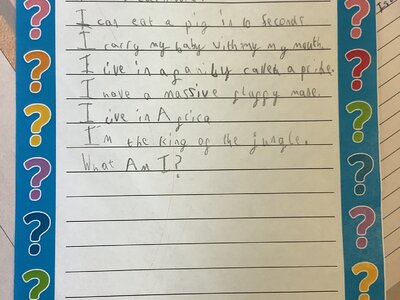 I can eat a pig in 6 seconds
I carry my baby with my my mouth.
I live in a family caveh a pride.
I have a massive floppy mane.
I live in Africa
I'm the king of the jungle.
What Am I?